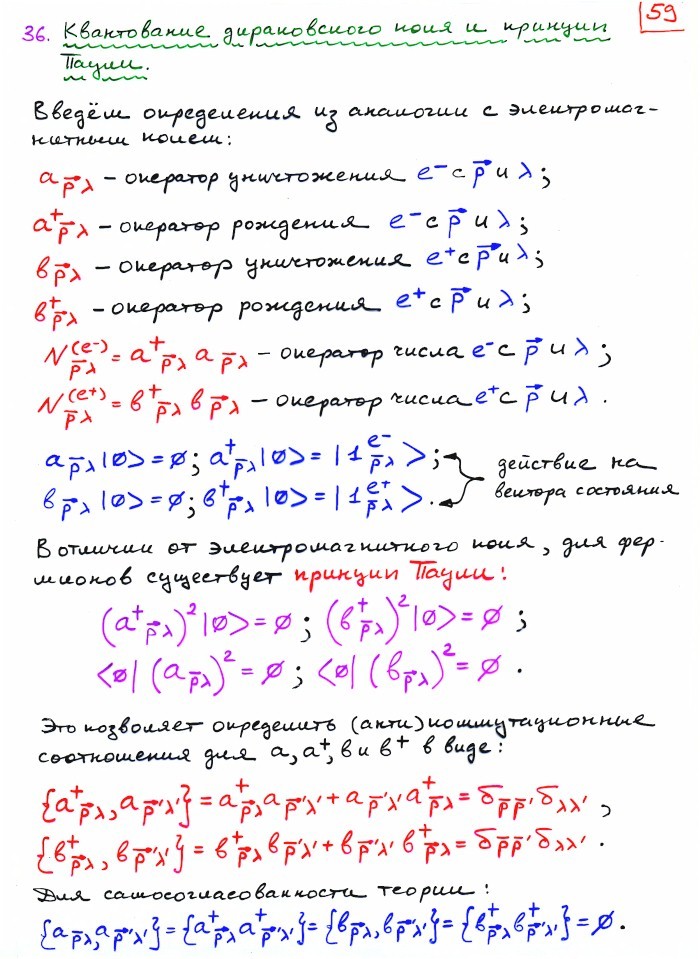 59
36. Квантование дираковского поля и принцип
Паули.
Введём определения из аналогии с электромаг-
нитным полем:
a_{p⃗λ} – оператор уничтожения e⁻ с p⃗ и λ;
a⁺_{p⃗λ} – оператор рождения e⁻ с p⃗ и λ;
в_{p⃗λ} – оператор уничтожения e⁺ с p⃗ и λ;
в⁺_{p⃗λ} – оператор рождения e⁺ с p⃗ и λ;
N^{(e⁻)}_{p⃗λ} = a⁺_{p⃗λ} a_{p⃗λ} – оператор числа e⁻ с p⃗ и λ;
N^{(e⁺)}_{p⃗λ} = в⁺_{p⃗λ} в_{p⃗λ} – оператор числа e⁺ с p⃗ и λ.
a_{p⃗λ}|0> = ∅; a⁺_{p⃗λ}|0> = |1^{e⁻}_{p⃗λ}>; действие на
в_{p⃗λ}|0> = ∅; в⁺_{p⃗λ}|0> = |1^{e⁺}_{p⃗λ}>. вектора состояния
В отличии от электромагнитного поля, для фер-
мионов существует принцип Паули:
(a⁺_{p⃗λ})²|0> = ∅; (в⁺_{p⃗λ})²|0> = ∅;
<0|(a_{p⃗λ})² = ∅; <0|(в_{p⃗λ})² = ∅.
Это позволяет определить (анти)коммутационные
соотношения для a, a⁺, в и в⁺ в виде:
{a⁺_{p⃗λ}, a_{p⃗'λ'}} = a⁺_{p⃗λ} a_{p⃗'λ'} + a_{p⃗'λ'} a⁺_{p⃗λ} = δ_{p⃗p⃗'} δ_{λλ'},
{в⁺_{p⃗λ}, в_{p⃗'λ'}} = в⁺_{p⃗λ} в_{p⃗'λ'} + в_{p⃗'λ'} в⁺_{p⃗λ} = δ_{p⃗p⃗'} δ_{λλ'}.
Для самосогласованности теории:
{a_{p⃗λ}, a_{p⃗'λ'}} = {a⁺_{p⃗λ} a⁺_{p⃗'λ'}} = {в_{p⃗λ}, в_{p⃗'λ'}} = {в⁺_{p⃗λ} в⁺_{p⃗'λ'}} = ∅.